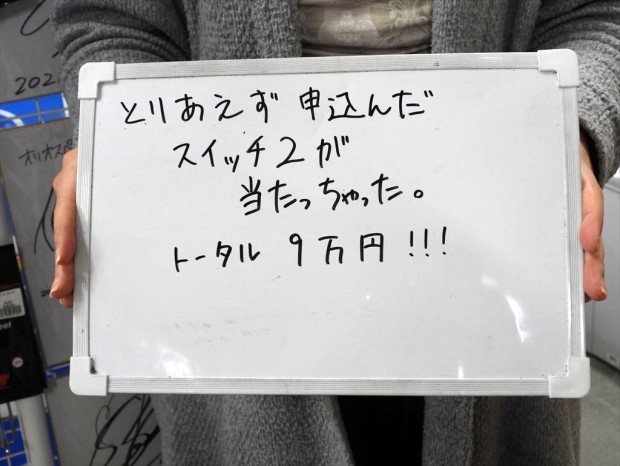 とりあえず 申込んだ
スイッチ2が
当たっちゃった。
トータル 9万円!!!
202
オリオスペ